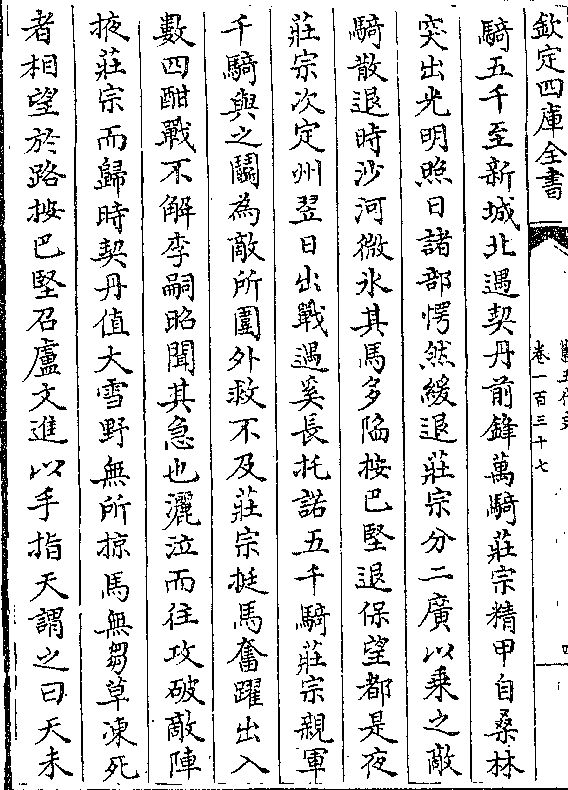 欽定四庫全書
卷一百三十七
騎五千至新城北遇契丹前鋒萬騎莊宗精甲自桑林
突出光明照日諸部愕然緩退莊宗分二廣以乗之敵
騎散退時沙河微氷其馬多陷按巴堅退保望都是夜
莊宗次定州翌日出戰遇奚長托諾五千騎莊宗親軍
千騎與之鬬為敵所圍外救不及莊宗挺馬奮躍出入
數四酣戰不解李嗣昭聞其急也灑泣而往攻破敵陣
掖莊宗而歸時契丹值大雪野無所掠馬無芻草凍死
者相望於路按巴堅召盧文進以手指天謂之曰天未